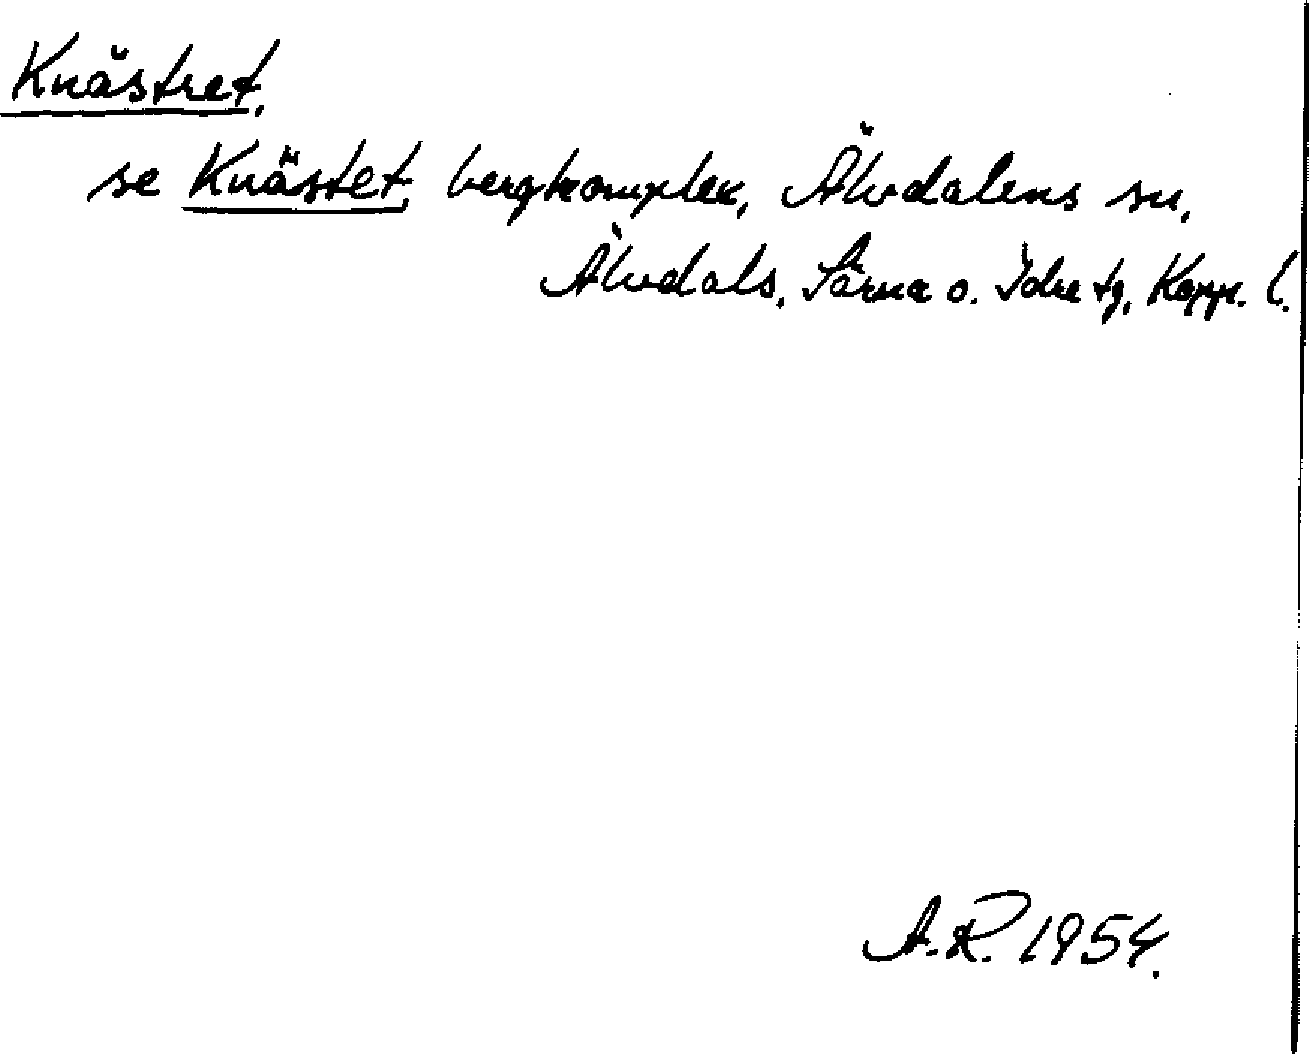 Knästret,
se Knästet, bergkomplex, Älvdalens sn,
Älvdals, Särna o. Idre tg, Kopp. l.
A.R. 1954.